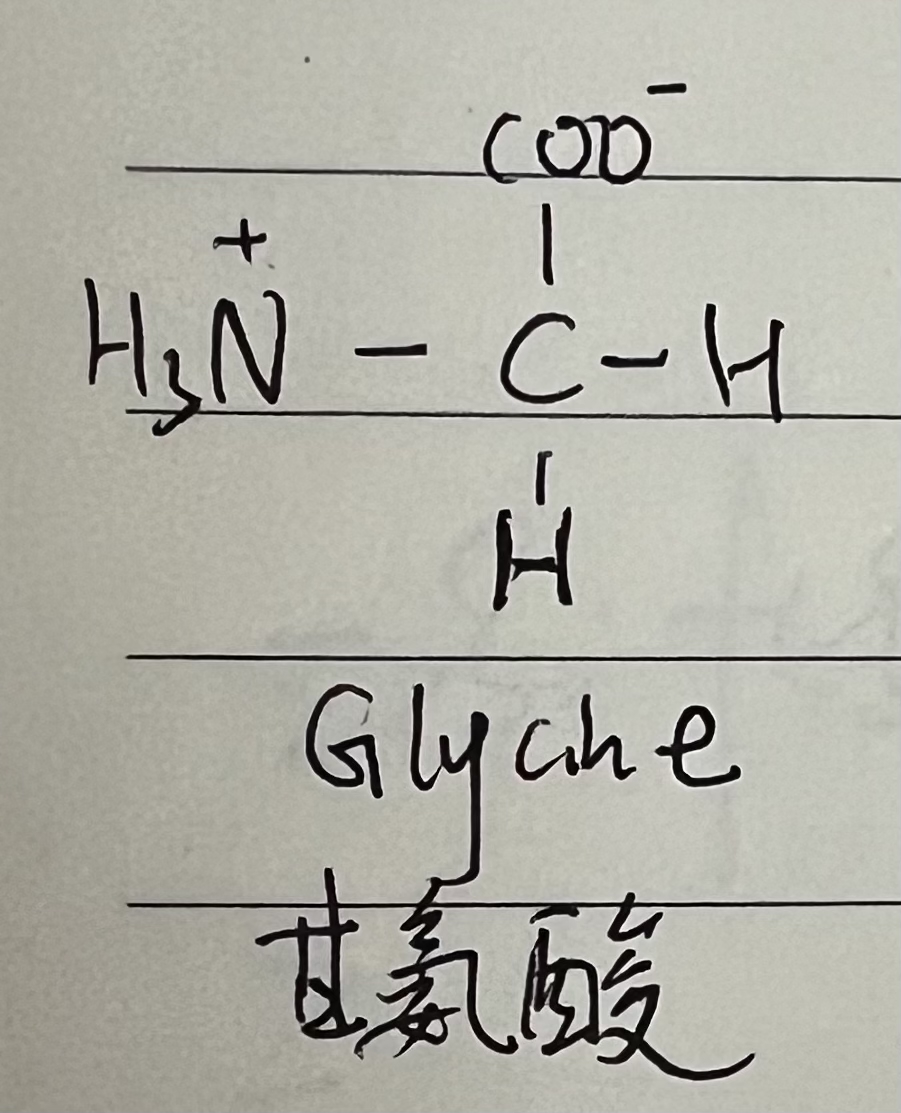 COO⁻
|
H₃N⁺ – C – H
|
H
Glycine
甘氨酸